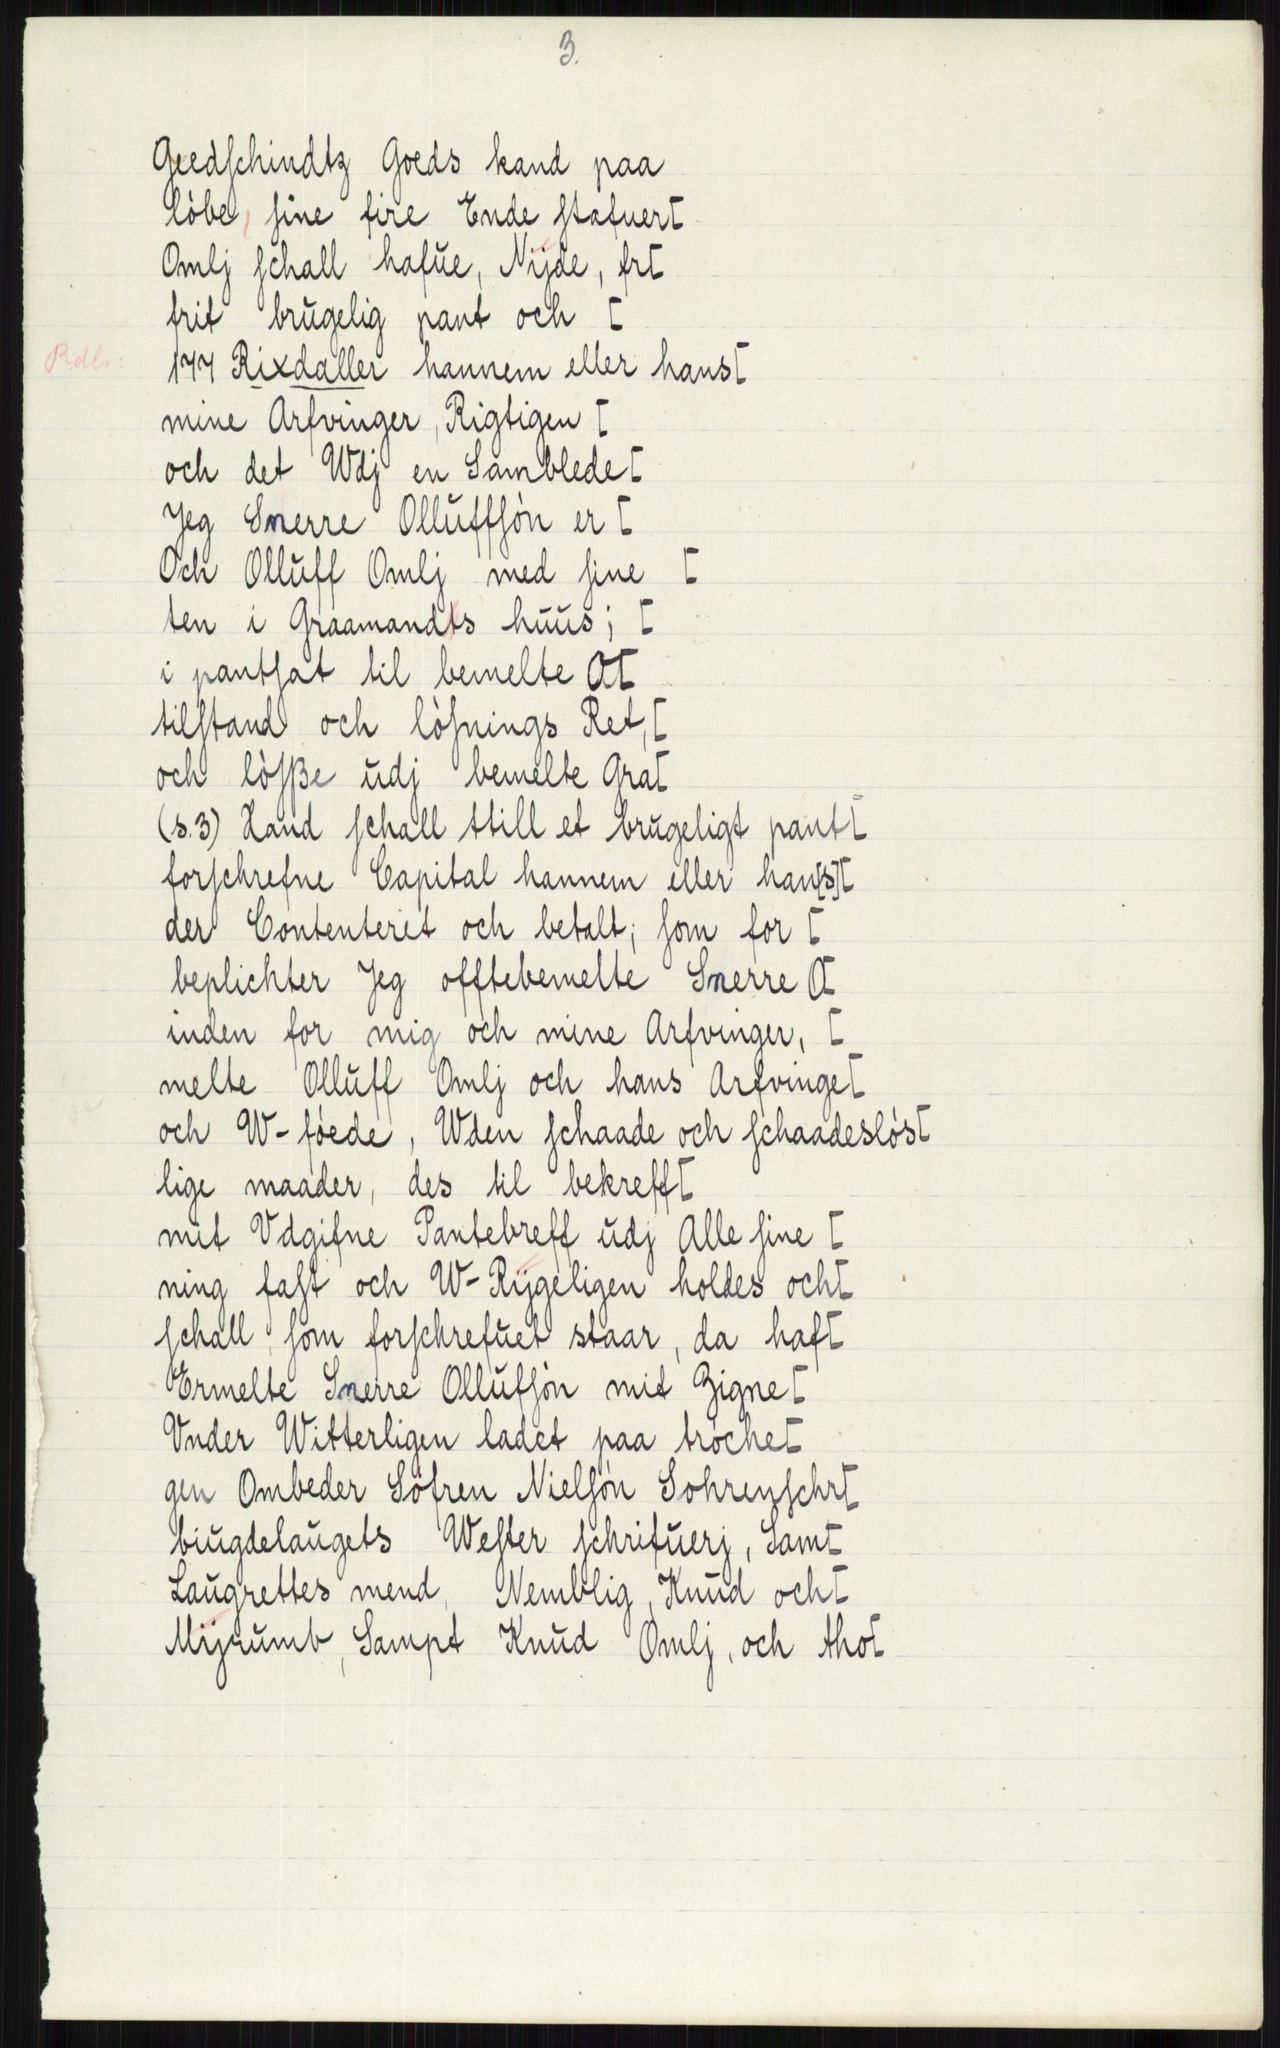 3.
Geedschindtz Goeds kand paa
löbe, sine fire Ende stafuer[
Omlj schall hafue, Nijde, fr[
frit brugelig pant och [
Rdlr: 177 Rixdaller hannem eller hans[
mine Arfvinger, Rigtigen [
och det Wdj en Samblede[
Jeg Snerre Olluffsön er [
Och Olluff Omlj med sine [
ten i Graamandts huus; [
i pantsat til bemelte O[
tilstand och lösnings Ret, [
och lösße udj bemelte Gra[
(s.3) Hand schall ttill et brugeligt pant[
forschrefne Capital hannem eller han[s][
der Contenterit och betalt; som for [
beplichter Jeg offtebemelte Snerre O[
inden for mig och mine Arfvinger, [
melte Olluff Omlj och hans Arfvinge[
och W-föede, Wden schaade och schaadeslös[
lige maader, des til bekreff[
mit Vdgifne Pantebreff udj Alle sine [
ning fast och W-Rijgeligen holdes och[
schall som forschrefuet staar, da haf[
Ermelte Snerre Ollufsön mit Zigne[
Vnder Witterligen ladet paa tröche[
gen Ombeder Söfren Nielsön Sohrenschr[
biugdelaugets Wester schrifuerj, Sam[
Laugrettes mend, Nemblig, Knud och[
Mijrumb, Sampt Knud Omlj, och tho[